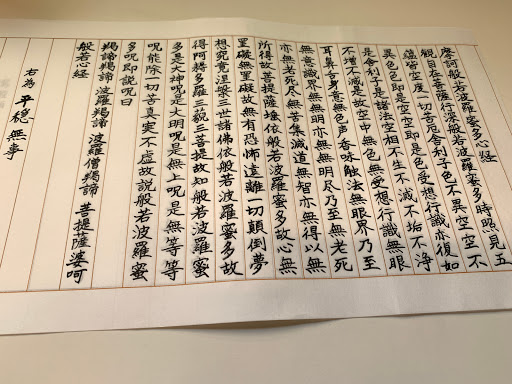 摩訶般若波羅蜜多心経
観自在菩薩行深般若波羅蜜多時照見五
蘊皆空度一切苦厄舎利子色不異空空不
異色色即是空空即是色受想行識亦復如
是舎利子是諸法空相不生不滅不垢不浄
不増不減是故空中無色無受想行識無眼
耳鼻舌身意無色声香味触法無眼界乃至
無意識界無無明亦無無明尽乃至無老死
亦無老死尽無苦集滅道無智亦無得以無
所得故菩提薩埵依般若波羅蜜多故心無
罣礙無罣礙故無有恐怖遠離一切顛倒夢
想究竟涅槃三世諸佛依般若波羅蜜多故
得阿耨多羅三藐三菩提故知般若波羅蜜
多是大神呪是大明呪是無上呪是無等等
呪能除一切苦真実不虚故説般若波羅蜜
多呪即説呪曰
羯諦羯諦 波羅羯諦 波羅僧羯諦 菩提薩婆呵
般若心経
右為 平穏無事